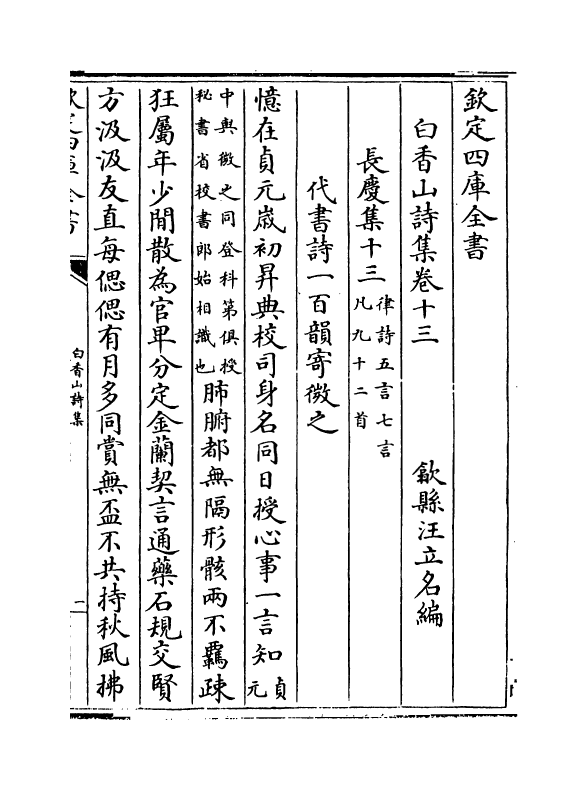 欽定四庫全書
白香山詩集卷十三　歙縣汪立名編
長慶集十三律詩五言七言
凡九十二首
代書詩一百韻寄微之
憶在貞元歳初昇典校司身名同日授心事一言知貞
元
中與微之同登科第俱授
秘書省校書郎始相識也
肺腑都無隔形骸兩不羈疎
狂屬年少閒散為官卑分定金蘭契言通藥石規交賢
方汲汲友直每偲偲有月多同賞無盃不共持秋風拂
白香山詩集